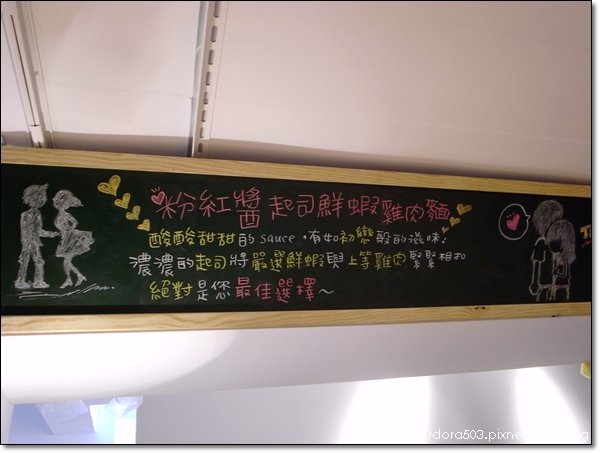 粉紅醬起司鮮蝦雞肉麵
酸酸甜甜的sauce，有如初戀般的滋味！
濃濃的起司將嚴選鮮蝦與上等雞肉緊緊相扣
絕對是您最佳選擇～